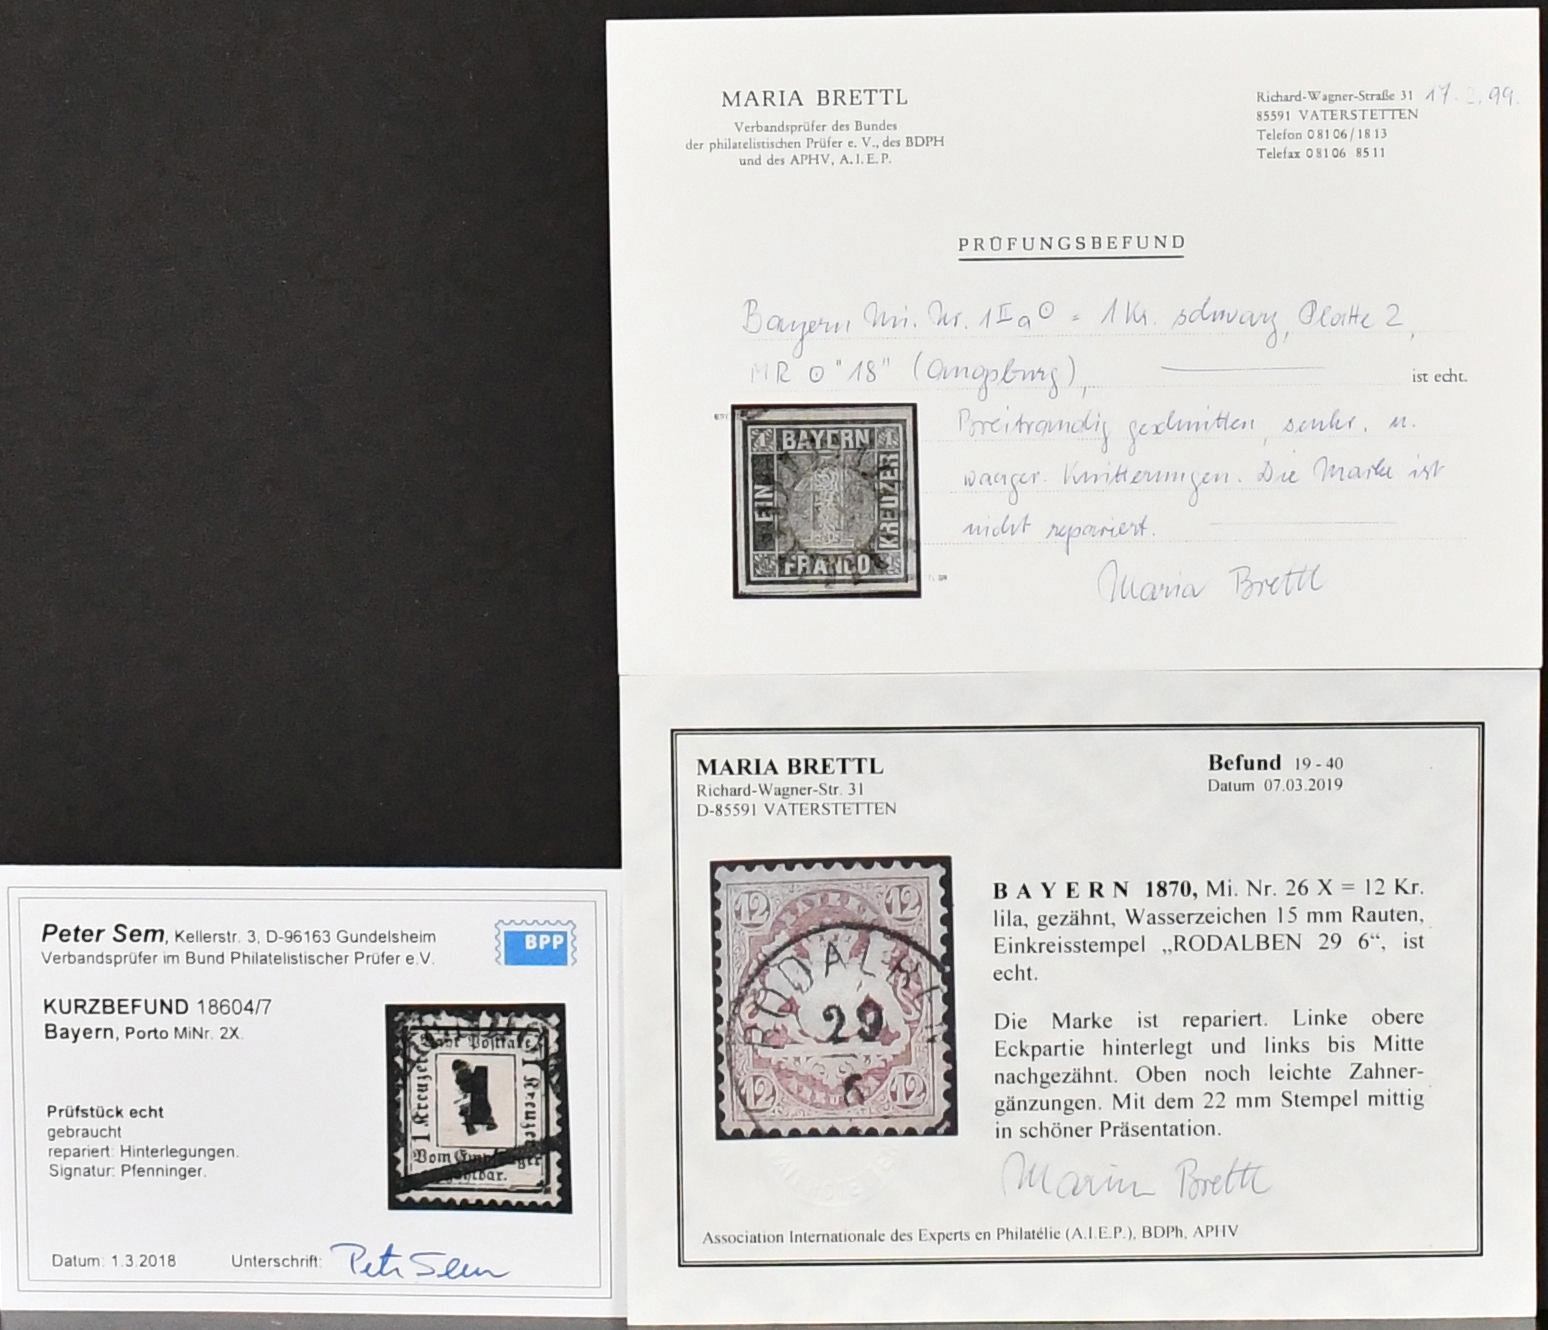 MARIA BRETTL
Verbandsprüfer des Bundes
der philatelistischen Prüfer e. V., des BDPH
und des APHV, A.I.E.P.
Richard-Wagner-Straße 31 17. 99.
85591 VATERSTETTEN
Telefon 08106/1813
Telefax 08106 8511
PRÜFUNGSBEFUND
Bayern Mi. Nr. 1 II a ⊙ = 1 Kr. schwarz, Platte 2,
MR ⊙ "18" (Augsburg), ist echt.
Breitrandig geschnitten, senkr. u.
waager. Knitterungen. Die Marke ist
nicht repariert.
Maria Brettl
1 BAYERN 1
EIN
KREUZER
FRANCO
MARIA BRETTL
Richard-Wagner-Str. 31
D-85591 VATERSTETTEN
Befund 19 - 40
Datum 07.03.2019
BAYERN 1870, Mi. Nr. 26 X = 12 Kr.
lila, gezähnt, Wasserzeichen 15 mm Rauten,
Einkreisstempel „RODALBEN 29 6“, ist
echt.
Die Marke ist repariert. Linke obere
Eckpartie hinterlegt und links bis Mitte
nachgezähnt. Oben noch leichte Zahner-
gänzungen. Mit dem 22 mm Stempel mittig
in schöner Präsentation.
Maria Brettl
Association Internationale des Experts en Philatélie (A.I.E.P.), BDPh, APHV
12 12
BAYERN
RODALBEN
29
6
12 12
Peter Sem, Kellerstr. 3, D-96163 Gundelsheim
Verbandsprüfer im Bund Philatelistischer Prüfer e.V.
BPP
KURZBEFUND 18604/7
Bayern, Porto MiNr. 2X.
Prüfstück echt
gebraucht
repariert: Hinterlegungen.
Signatur: Pfenninger.
Datum: 1.3.2018 Unterschrift: Peter Sem
Bayr. Posttaxe
1 Kreuzer
1 Kreuzer
Vom Empfänger
zahlbar.